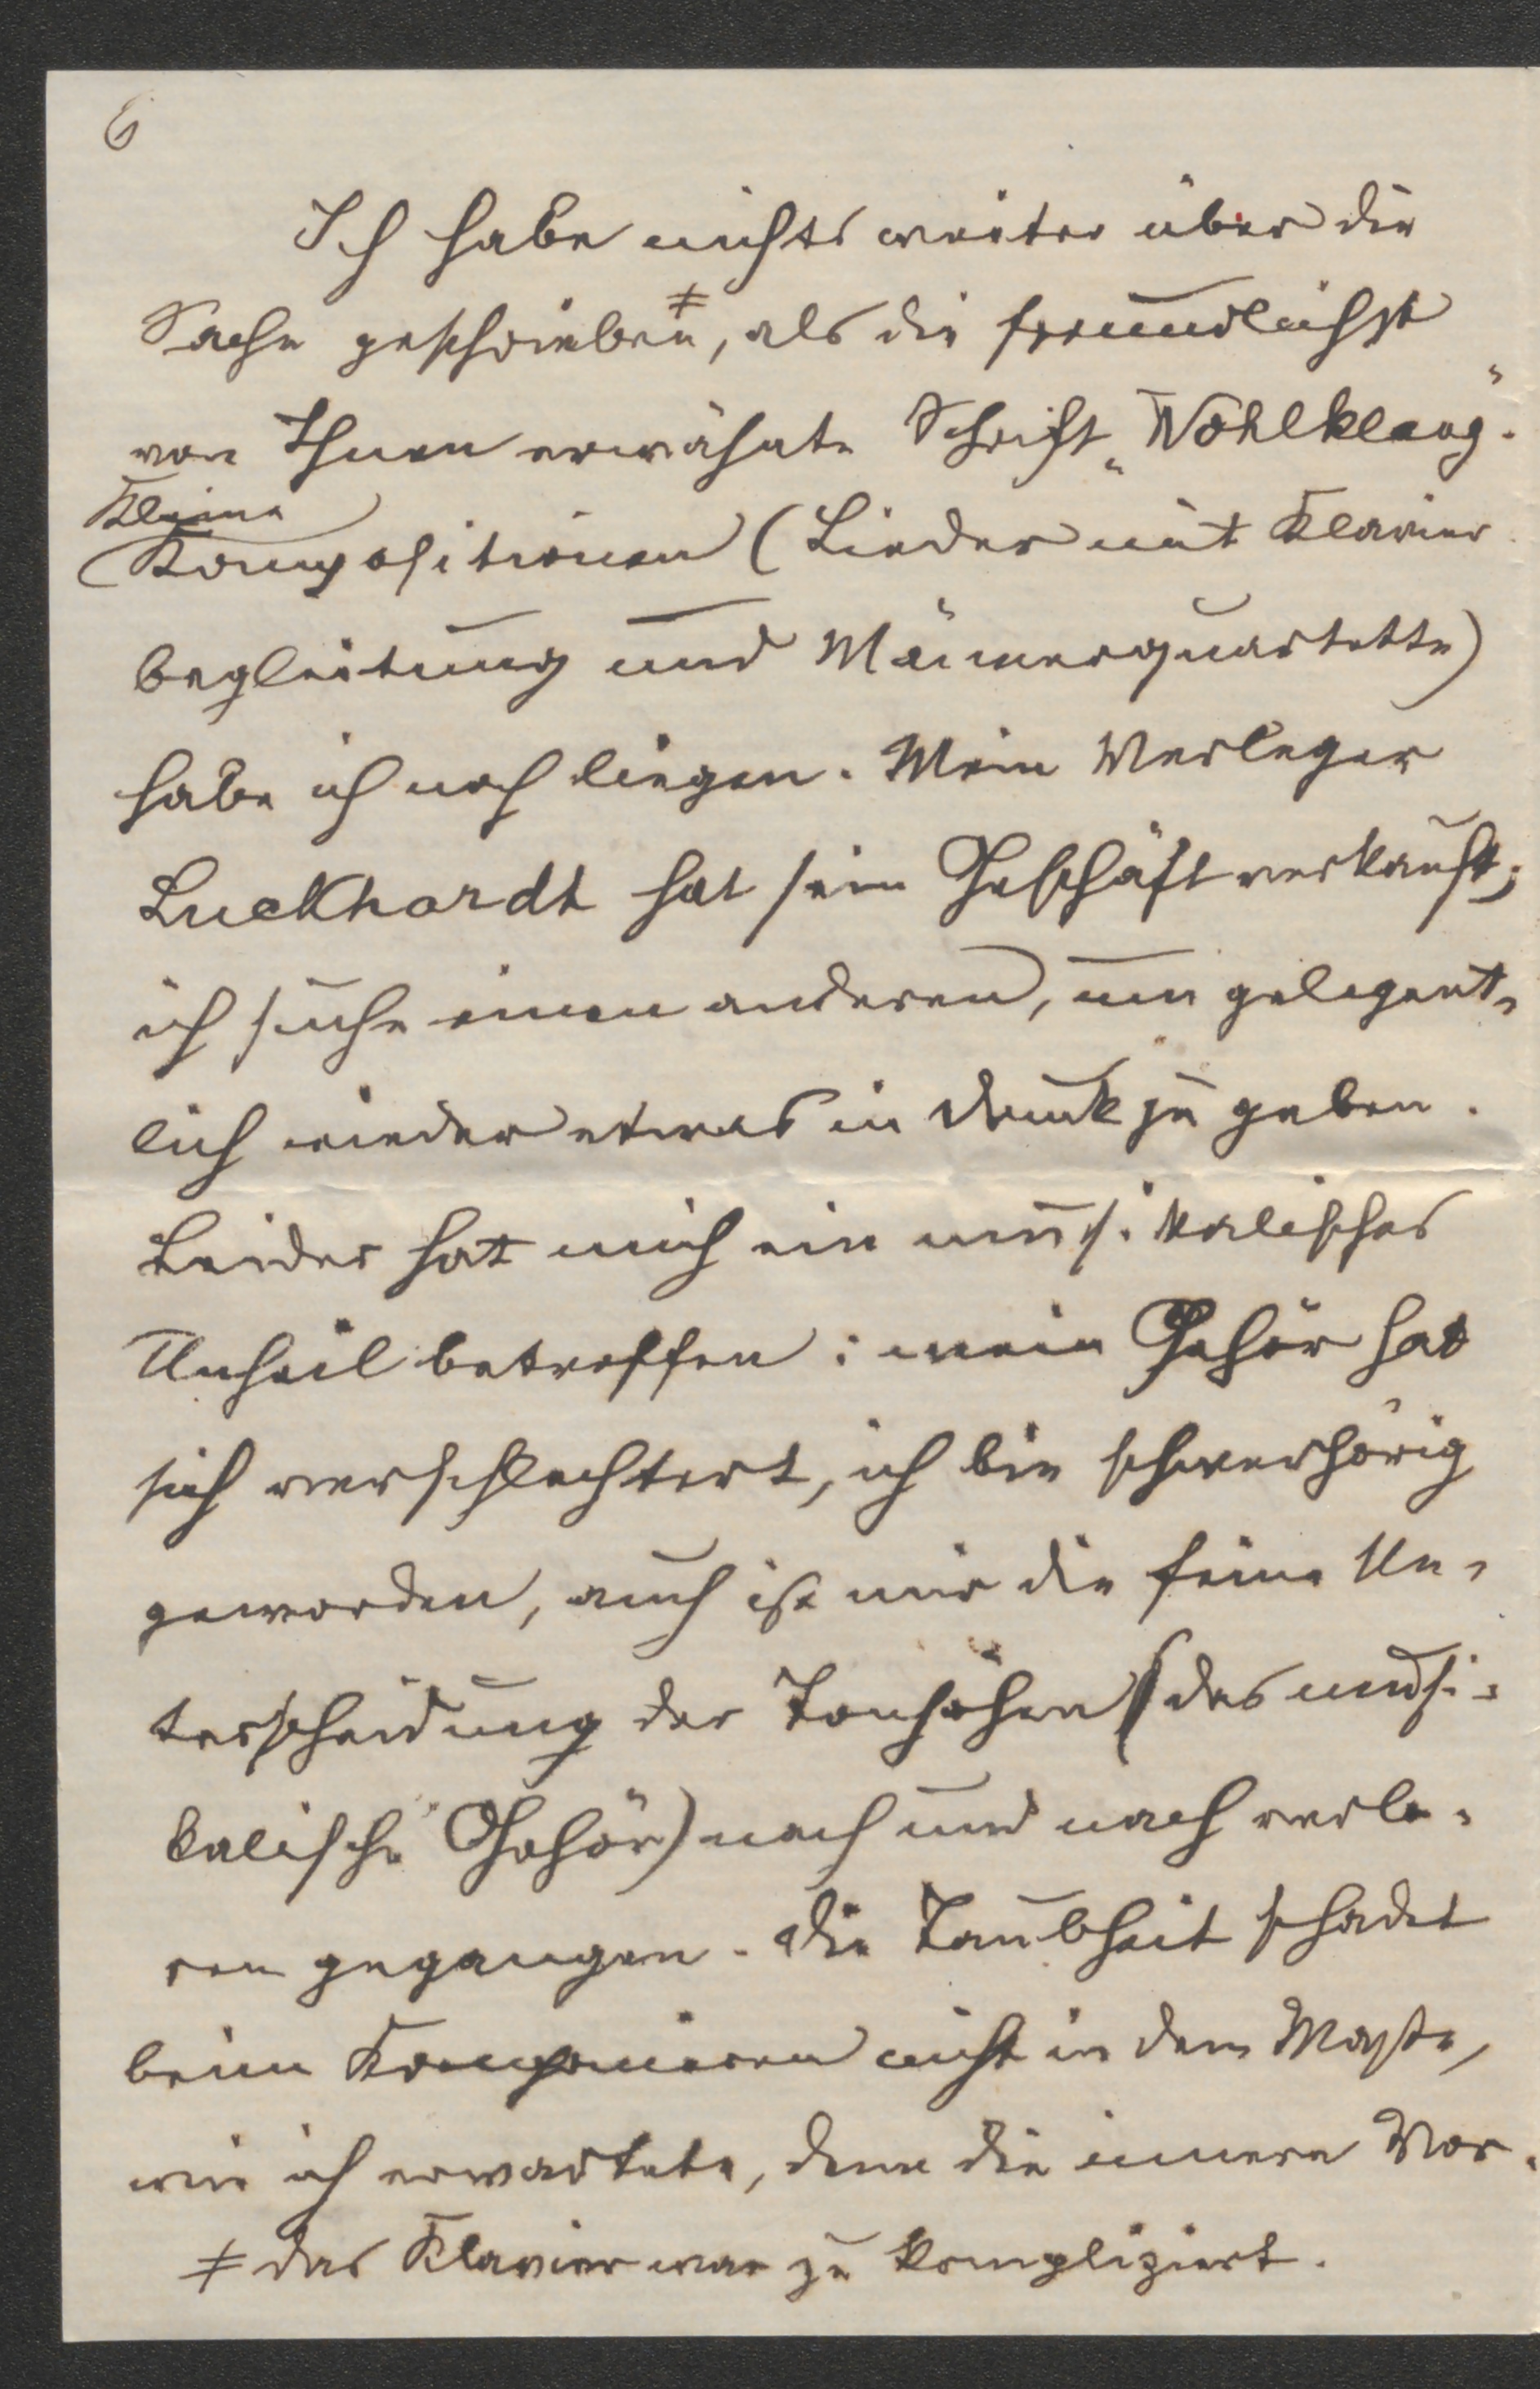 6
Ich habe nichts weiter über die
Sache geschrieben ≠, als die freundlichst
von Ihnen erwähnte Schrift „Wohlklang“.
Kleine
Kompositionen (Lieder mit Klavier
begleitung und Männerquartette)
habe ich noch liegen. Mein Verleger
Luckhardt hat sein Geschäft verkauft;
ich suche einen anderen, um gelegent-
lich wieder etwas in Druck zu geben.
Leider hat mich ein musikalisches
Unheil betroffen: mein Gehör hat
sich verschlechtert, ich bin schwerhörig
geworden, auch ist mir die feine Un-
terscheidung der Tonhöhen (das musi-
kalische Gehör) nach und nach verlo-
ren gegangen. Die Taubheit schadet
beim Komponieren nicht in dem Maße,
wie ich erwartete, denn die innere Vor-
≠ das Klavier war zu kompliziert.